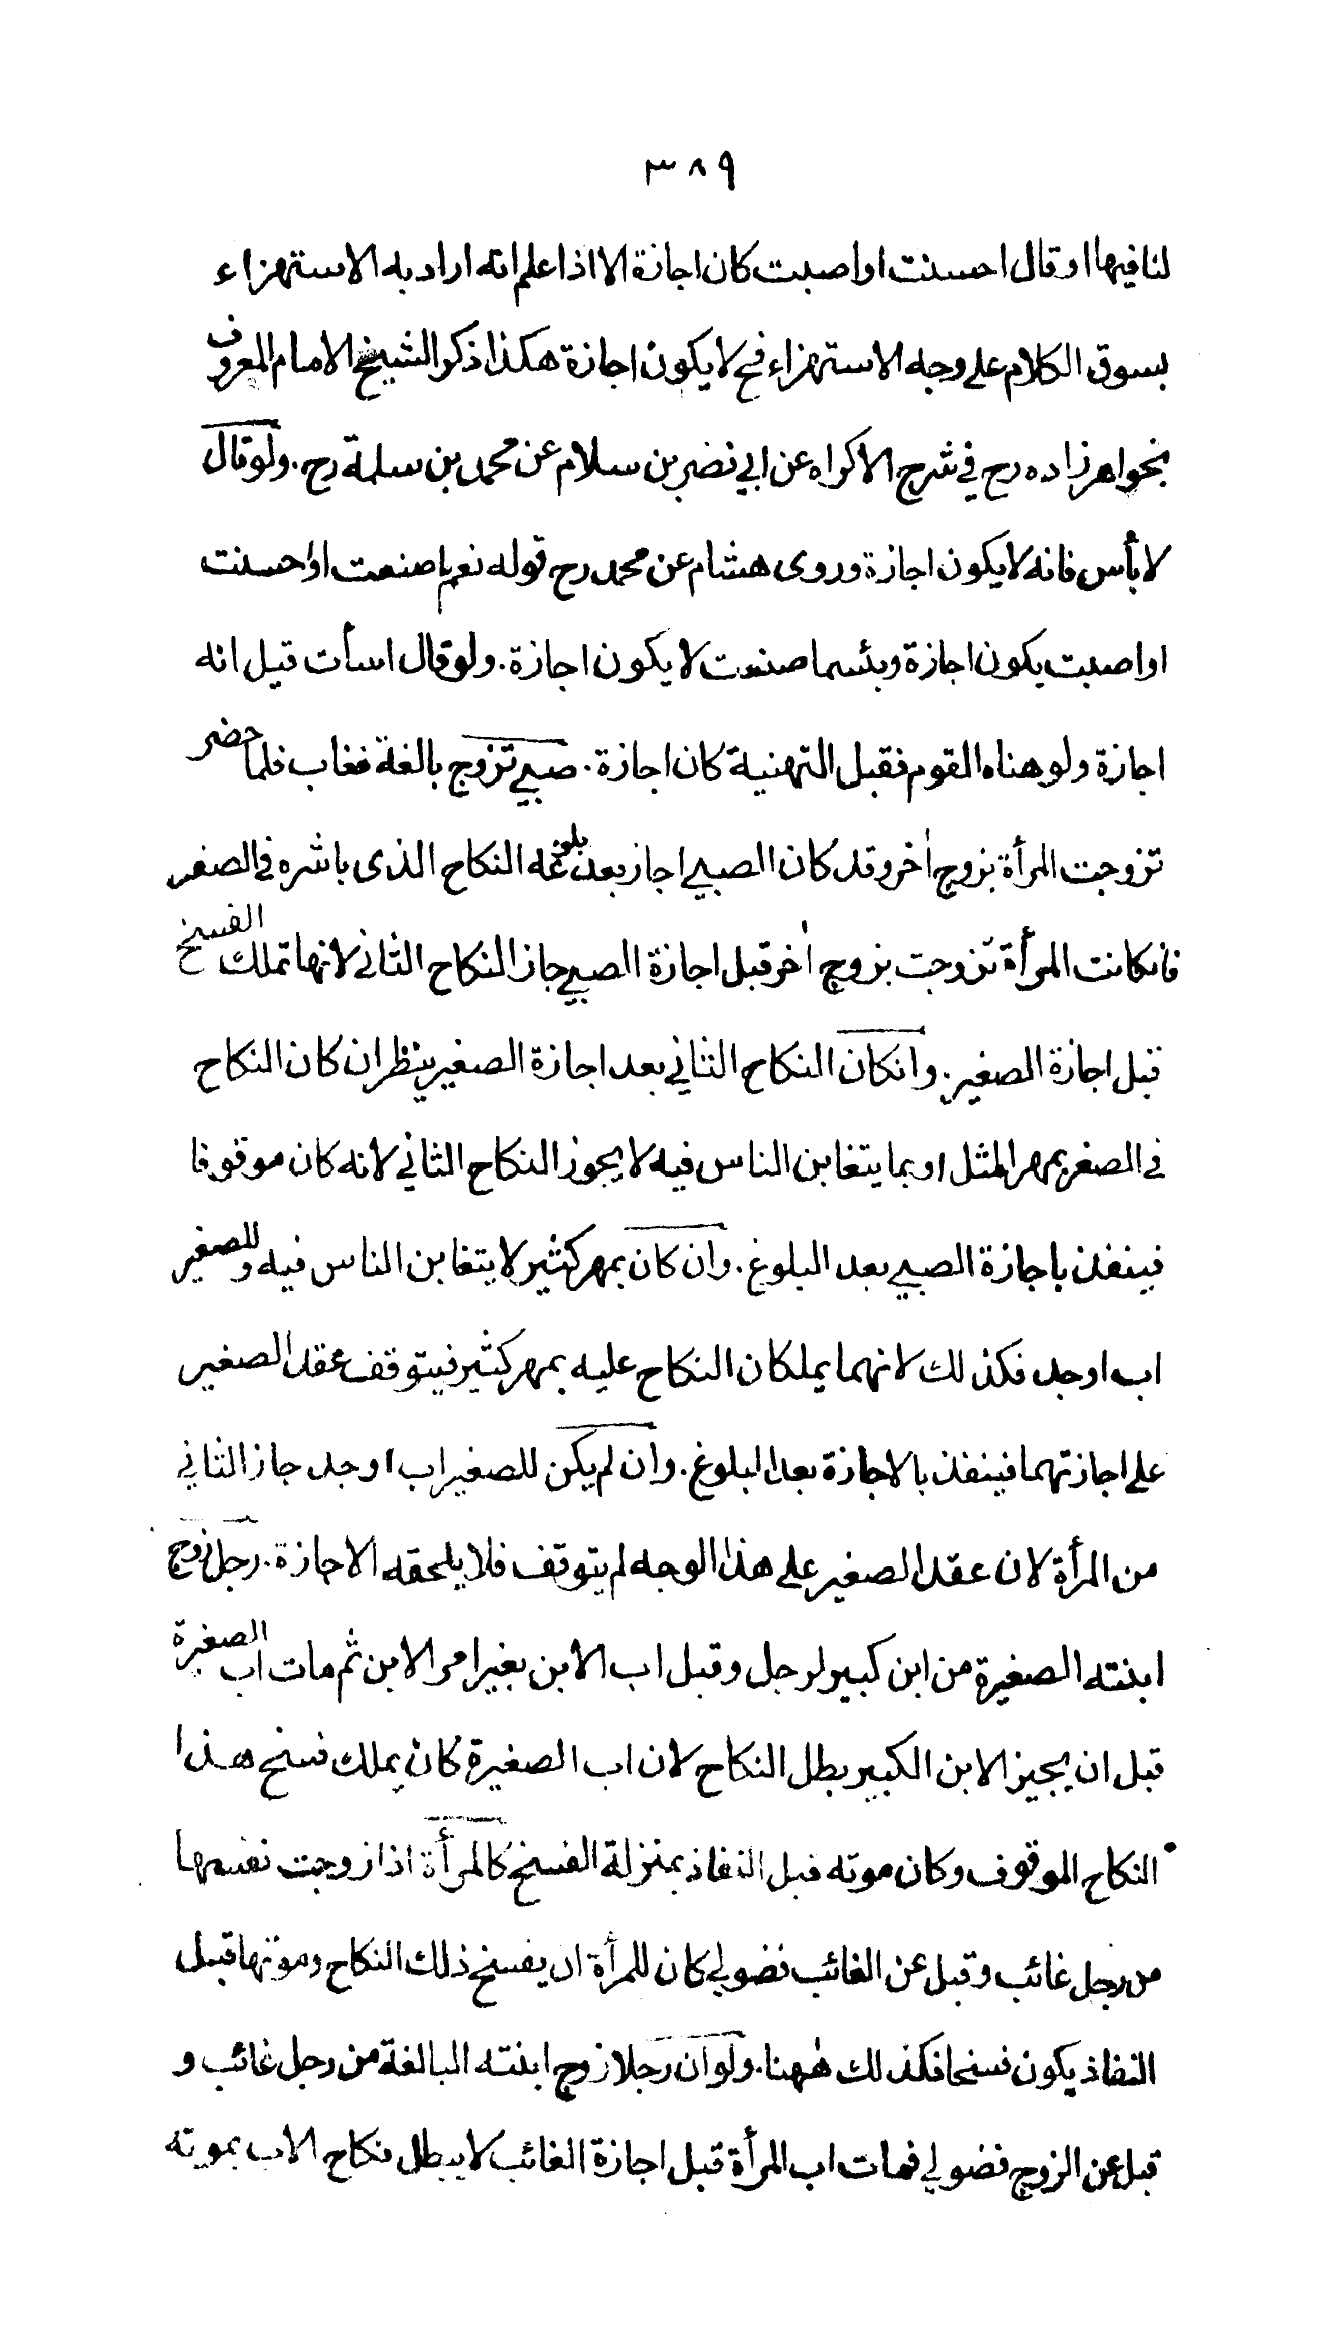 ٣٨٩
لنا فيها او قال احسنت او اصبت كان اجازة الا اذا علم انه اراد به الاستهزاء
بسوق الكلام على وجه الاستهزاء فح لا يكون اجازة هكذا ذكر الشيخ الامام المعروف
بخواهر زاده رح في شرح الاكراه عن ابي نضر بن سلام عن محمد بن سلمة رح . ولو قال
لا بأس فانه لا يكون اجازة وروى هشام عن محمد رح قوله نعم ما صنعت او احسنت
او اصبت يكون اجازة وبئسما صنعت لا يكون اجازة . ولو قال اسأت قيل انه
اجازة ولو هناه القوم فقبل التهنية كان اجازة . صبي تزوج بالغة فغاب فلما حضر
تزوجت المرأة بزوج اٰخر وقد كان الصبي اجاز بعد بلوغه النكاح الذى باشره في الصغر
فانكانت المرأة تزوجت بزوج اٰخر قبل اجازة الصبي جاز النكاح الثاني لانها تملك الفسخ
قبل اجازة الصغير . وانكان النكاح الثاني بعد اجازة الصغير ينظر ان كان النكاح
في الصغر بمهر المثل او بما يتغابن الناس فيه لا يجوز النكاح الثاني لانه كان موقوفا
فينفذ باجازة الصبي بعد البلوغ . وان كان بمهر كثير لا يتغابن الناس فيه وللصغير
اب او جد فكذلك لانهما يملكان النكاح عليه بمهر كثير فيتوقف عقد الصغير
على اجازتهما فينفذ بالاجازة بعد البلوغ . وان لم يكن للصغير اب او جد جاز الثاني
من المرأة لان عقد الصغير على هذا الوجه لم يتوقف فلا يلحقه الاجازة . رجل زوج
ابنته الصغيرة من ابن كبير لرجل وقبل اب الابن بغير امر الابن ثم مات اب الصغيرة
قبل ان يجيز الابن الكبير بطل النكاح لان اب الصغيرة كان يملك فسخ هذا
النكاح الموقوف وكان موته قبل النفاذ بمنزلة الفسخ كالمرأة اذا زوجت نفسها
من رجل غائب وقبل عن الغائب فضولي كان للمرأة ان يفسخ ذلك النكاح وموتها قبل
النفاذ يكون فسخا فكذلك هٰهنا . ولو ان رجلا زوج ابنته البالغة من رجل غائب و
قبل عن الزوج فضولي فمات اب المرأة قبل اجازة الغائب لا يبطل نكاح الاب بموته